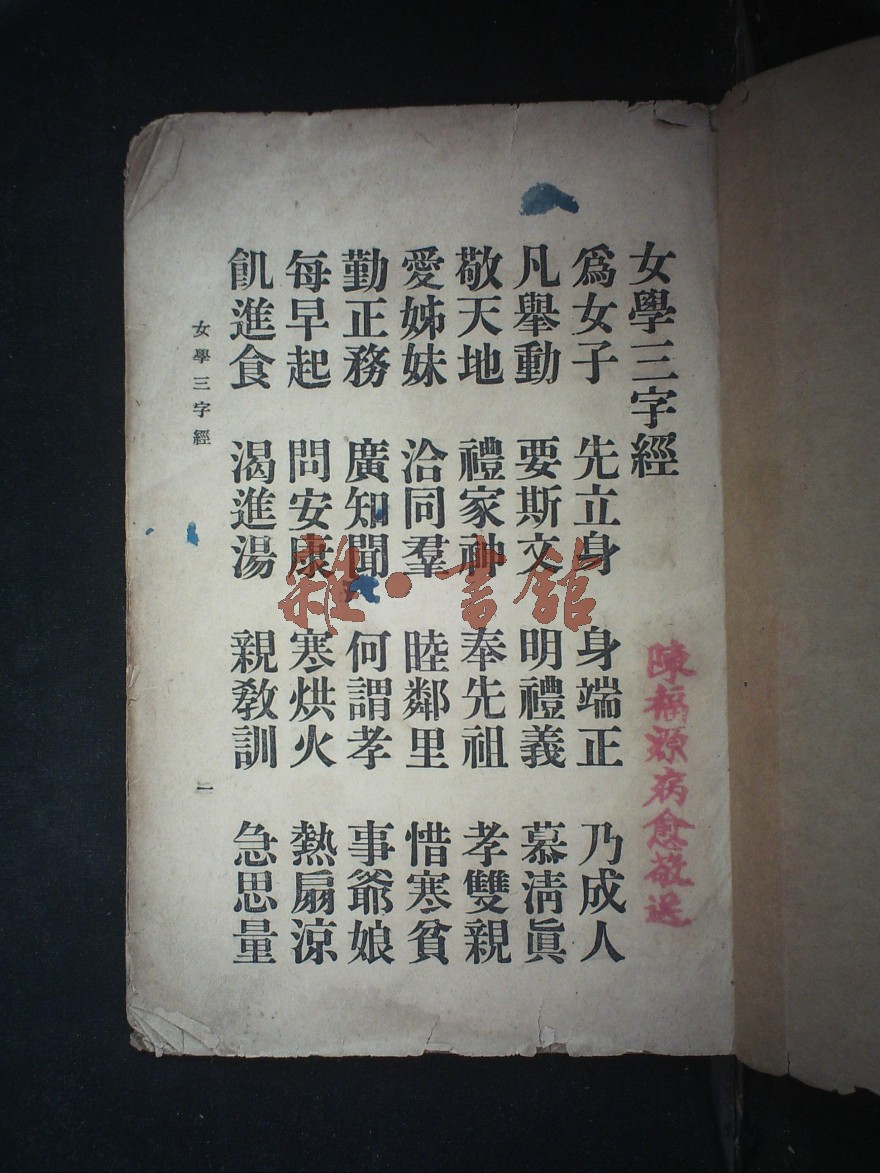 女學三字經
陳福源病愈敬送
爲女子 先立身 身端正 乃成人
凡舉動 要斯文 明禮義 慕淸眞
敬天地 禮家神 奉先祖 孝雙親
愛姊妹 洽同羣 睦鄰里 惜寒貧
勤正務 廣知聞 何謂孝 事爺娘
每早起 問安康 寒烘火 熱扇涼
飢進食 渴進湯 親敎訓 急思量
女學三字經
一
雜·書館